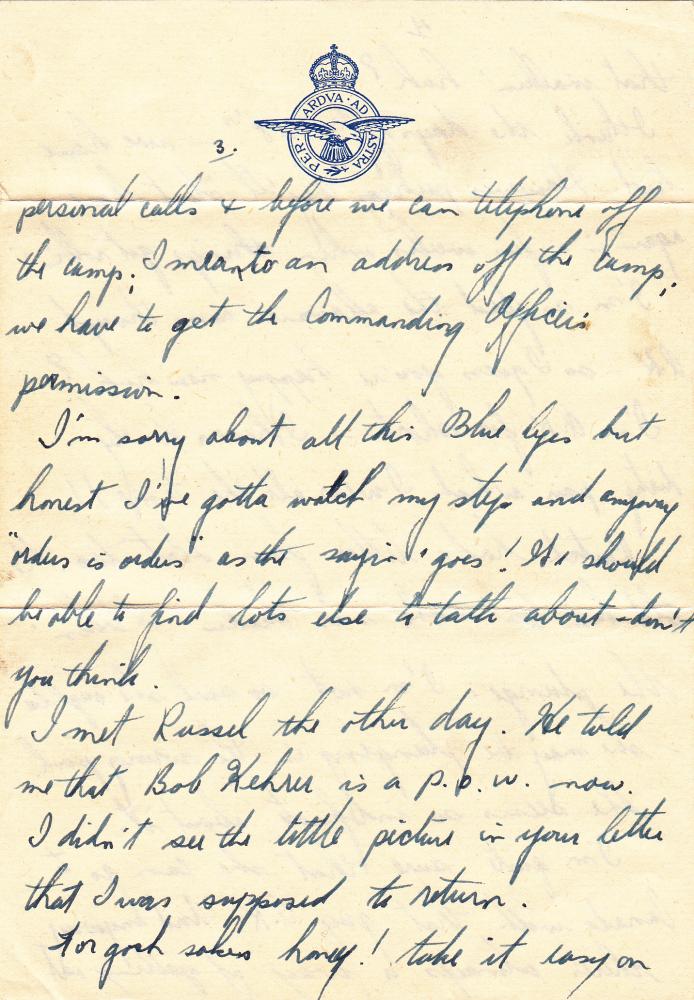 PER · ARDVA · AD ASTRA
3.
personal calls & before we can telephone off
the camp; I mean, to an address off the camp;
we have to get the Commanding Officer's
permission.
I'm sorry about all this Blue Eyes but
honest I've gotta watch my step and anyway
"orders is orders" as the sayin' goes! We should
be able to find lots else to talk about - don't
you think.
I met Russel the other day. He told
me that Bob Kehrer is a p.o.w. now.
I didn't see the little picture in your letter
that I was supposed to return.
For gosh sakes honey! take it easy on